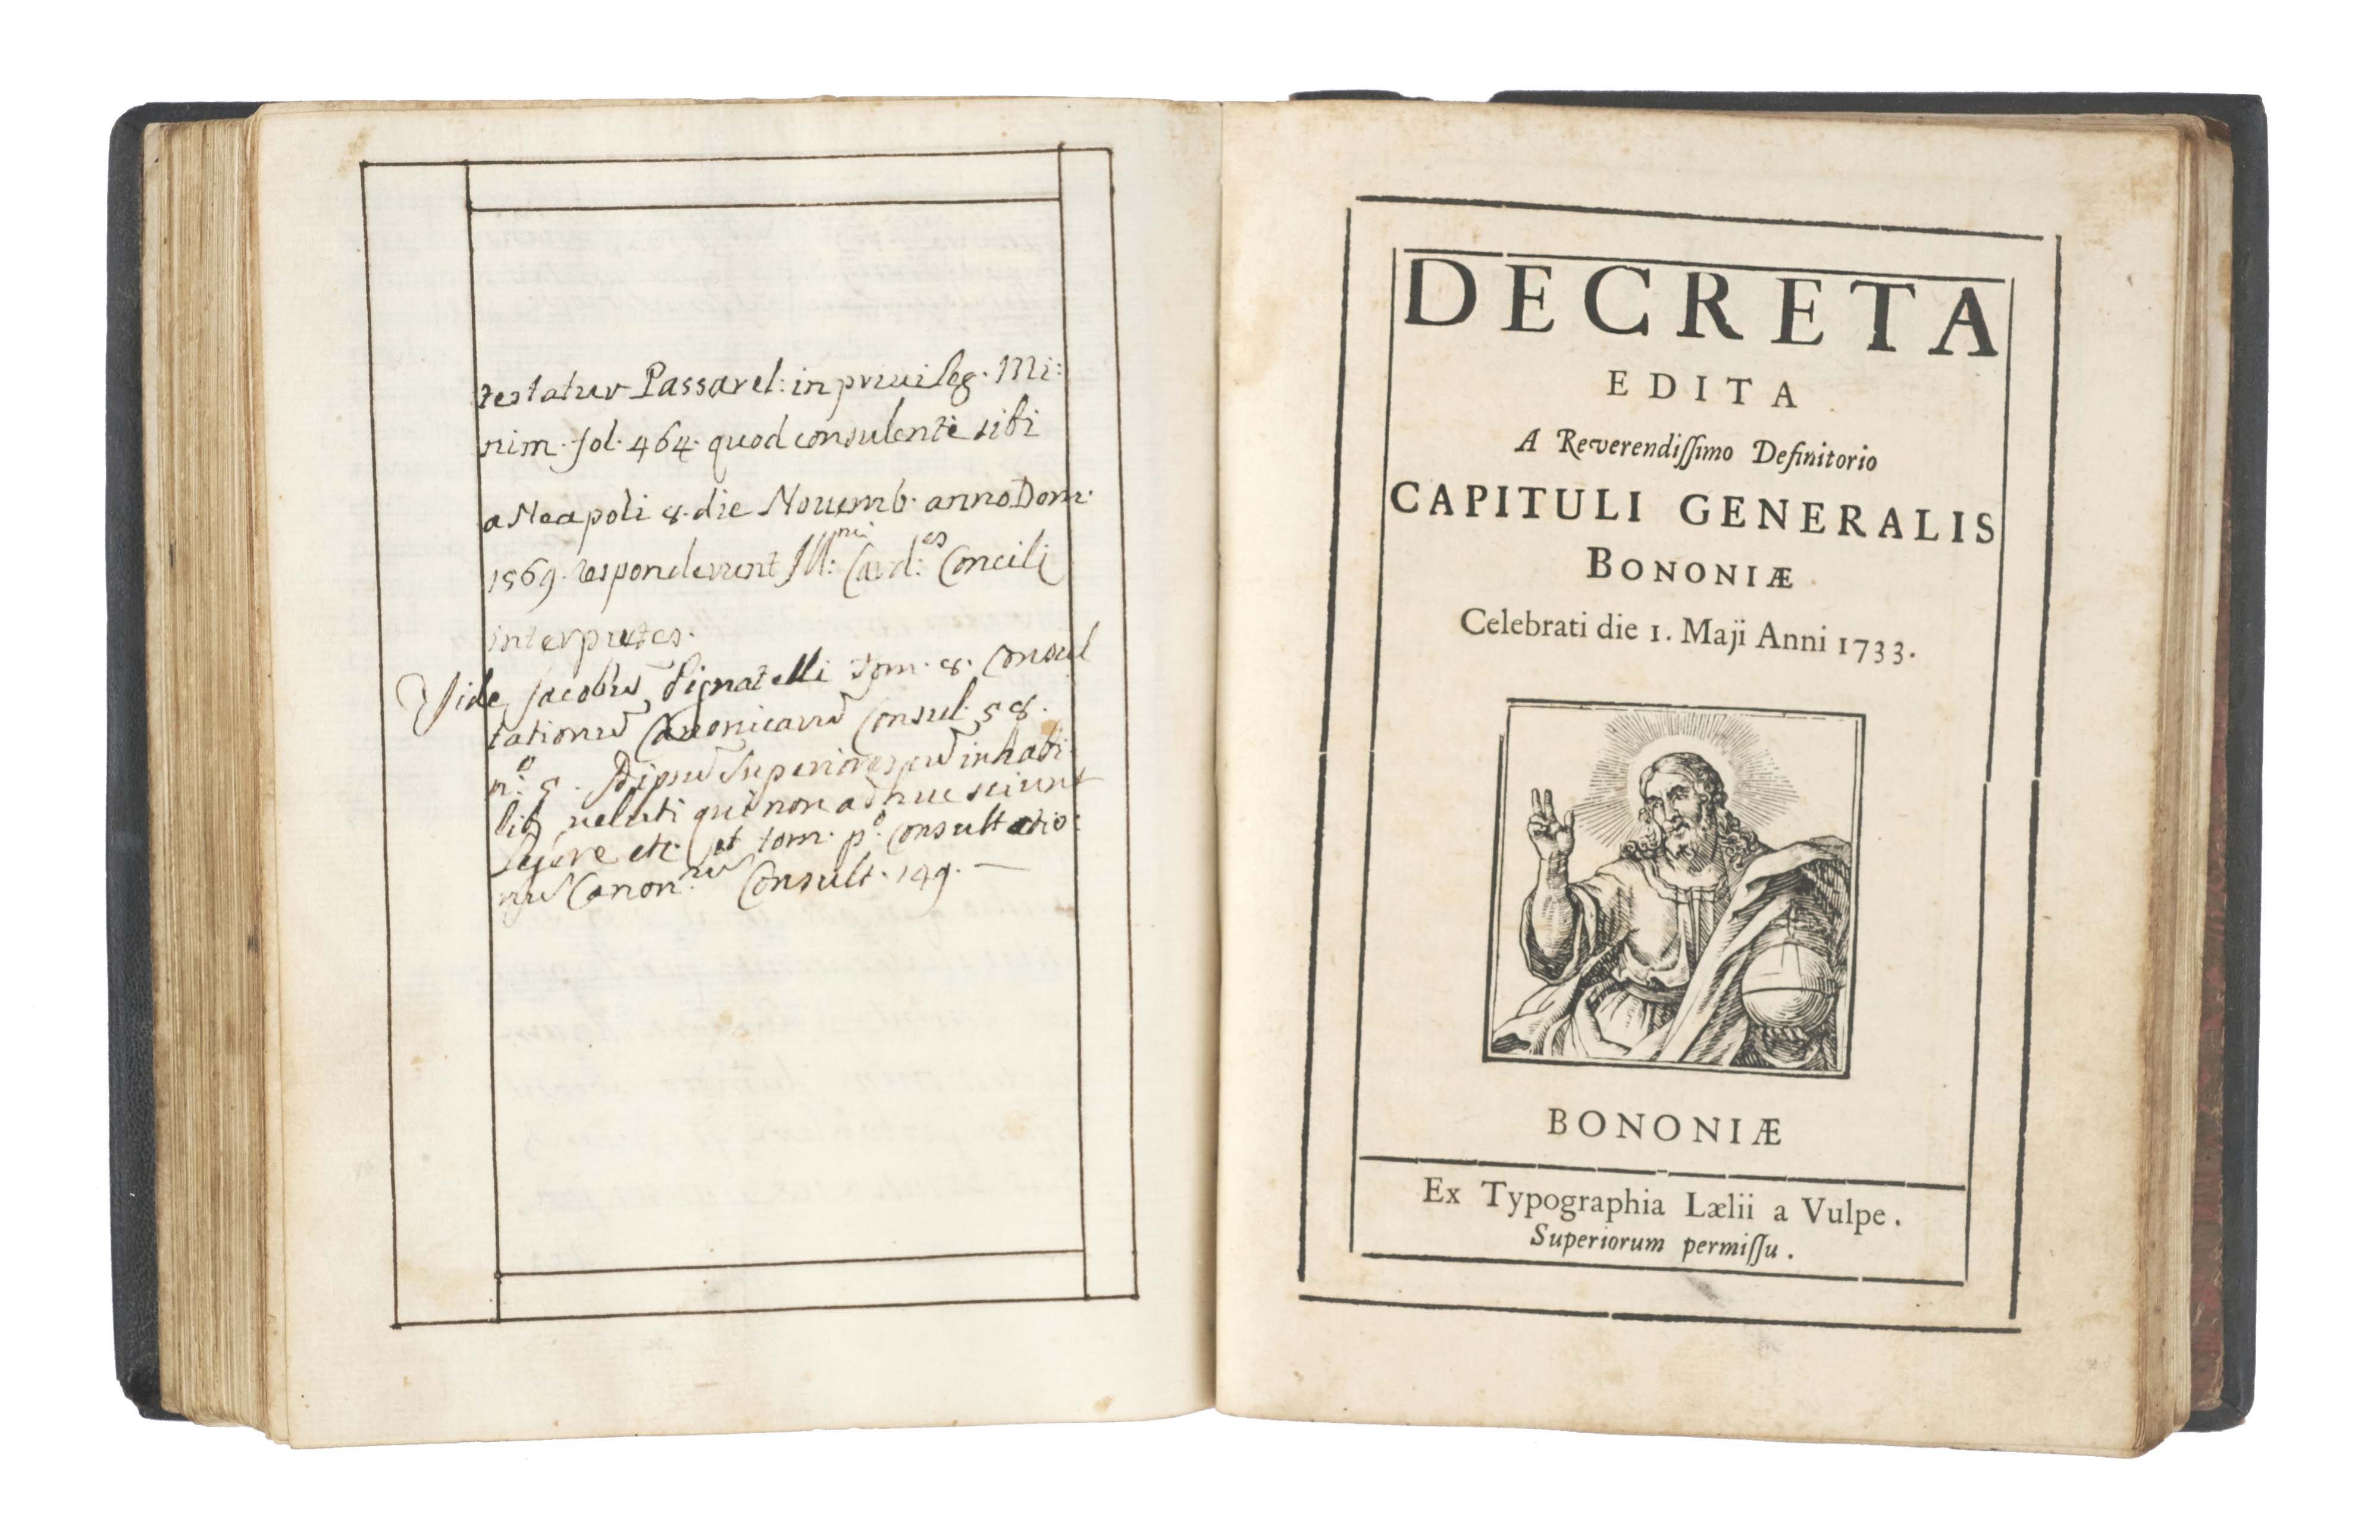 testatur Passarel: in priuileg. Mi:
nim. fol. 464. quod consulenti sibi
a Neapoli 8. die Nouemb. anno Dom.
1569. responderunt Ill:mi Card:es Concilij
interpretes.
Vide Jacobũ Pignatelli Tom. 8. Consul
tationũ Canonicarũ Consul. 58.
n:o 5. Superiores inhabi
les veluti qui non adhuc sciunt
legere etc. et tom. p.o Consultatio:
nũ Canon:rũ Consult. 149. —
DECRETA
EDITA
A Reverendiſſimo Definitorio
CAPITULI GENERALIS
BONONIÆ
Celebrati die 1. Maji Anni 1733.
BONONIÆ
Ex Typographia Lælii a Vulpe.
Superiorum permiſſu.